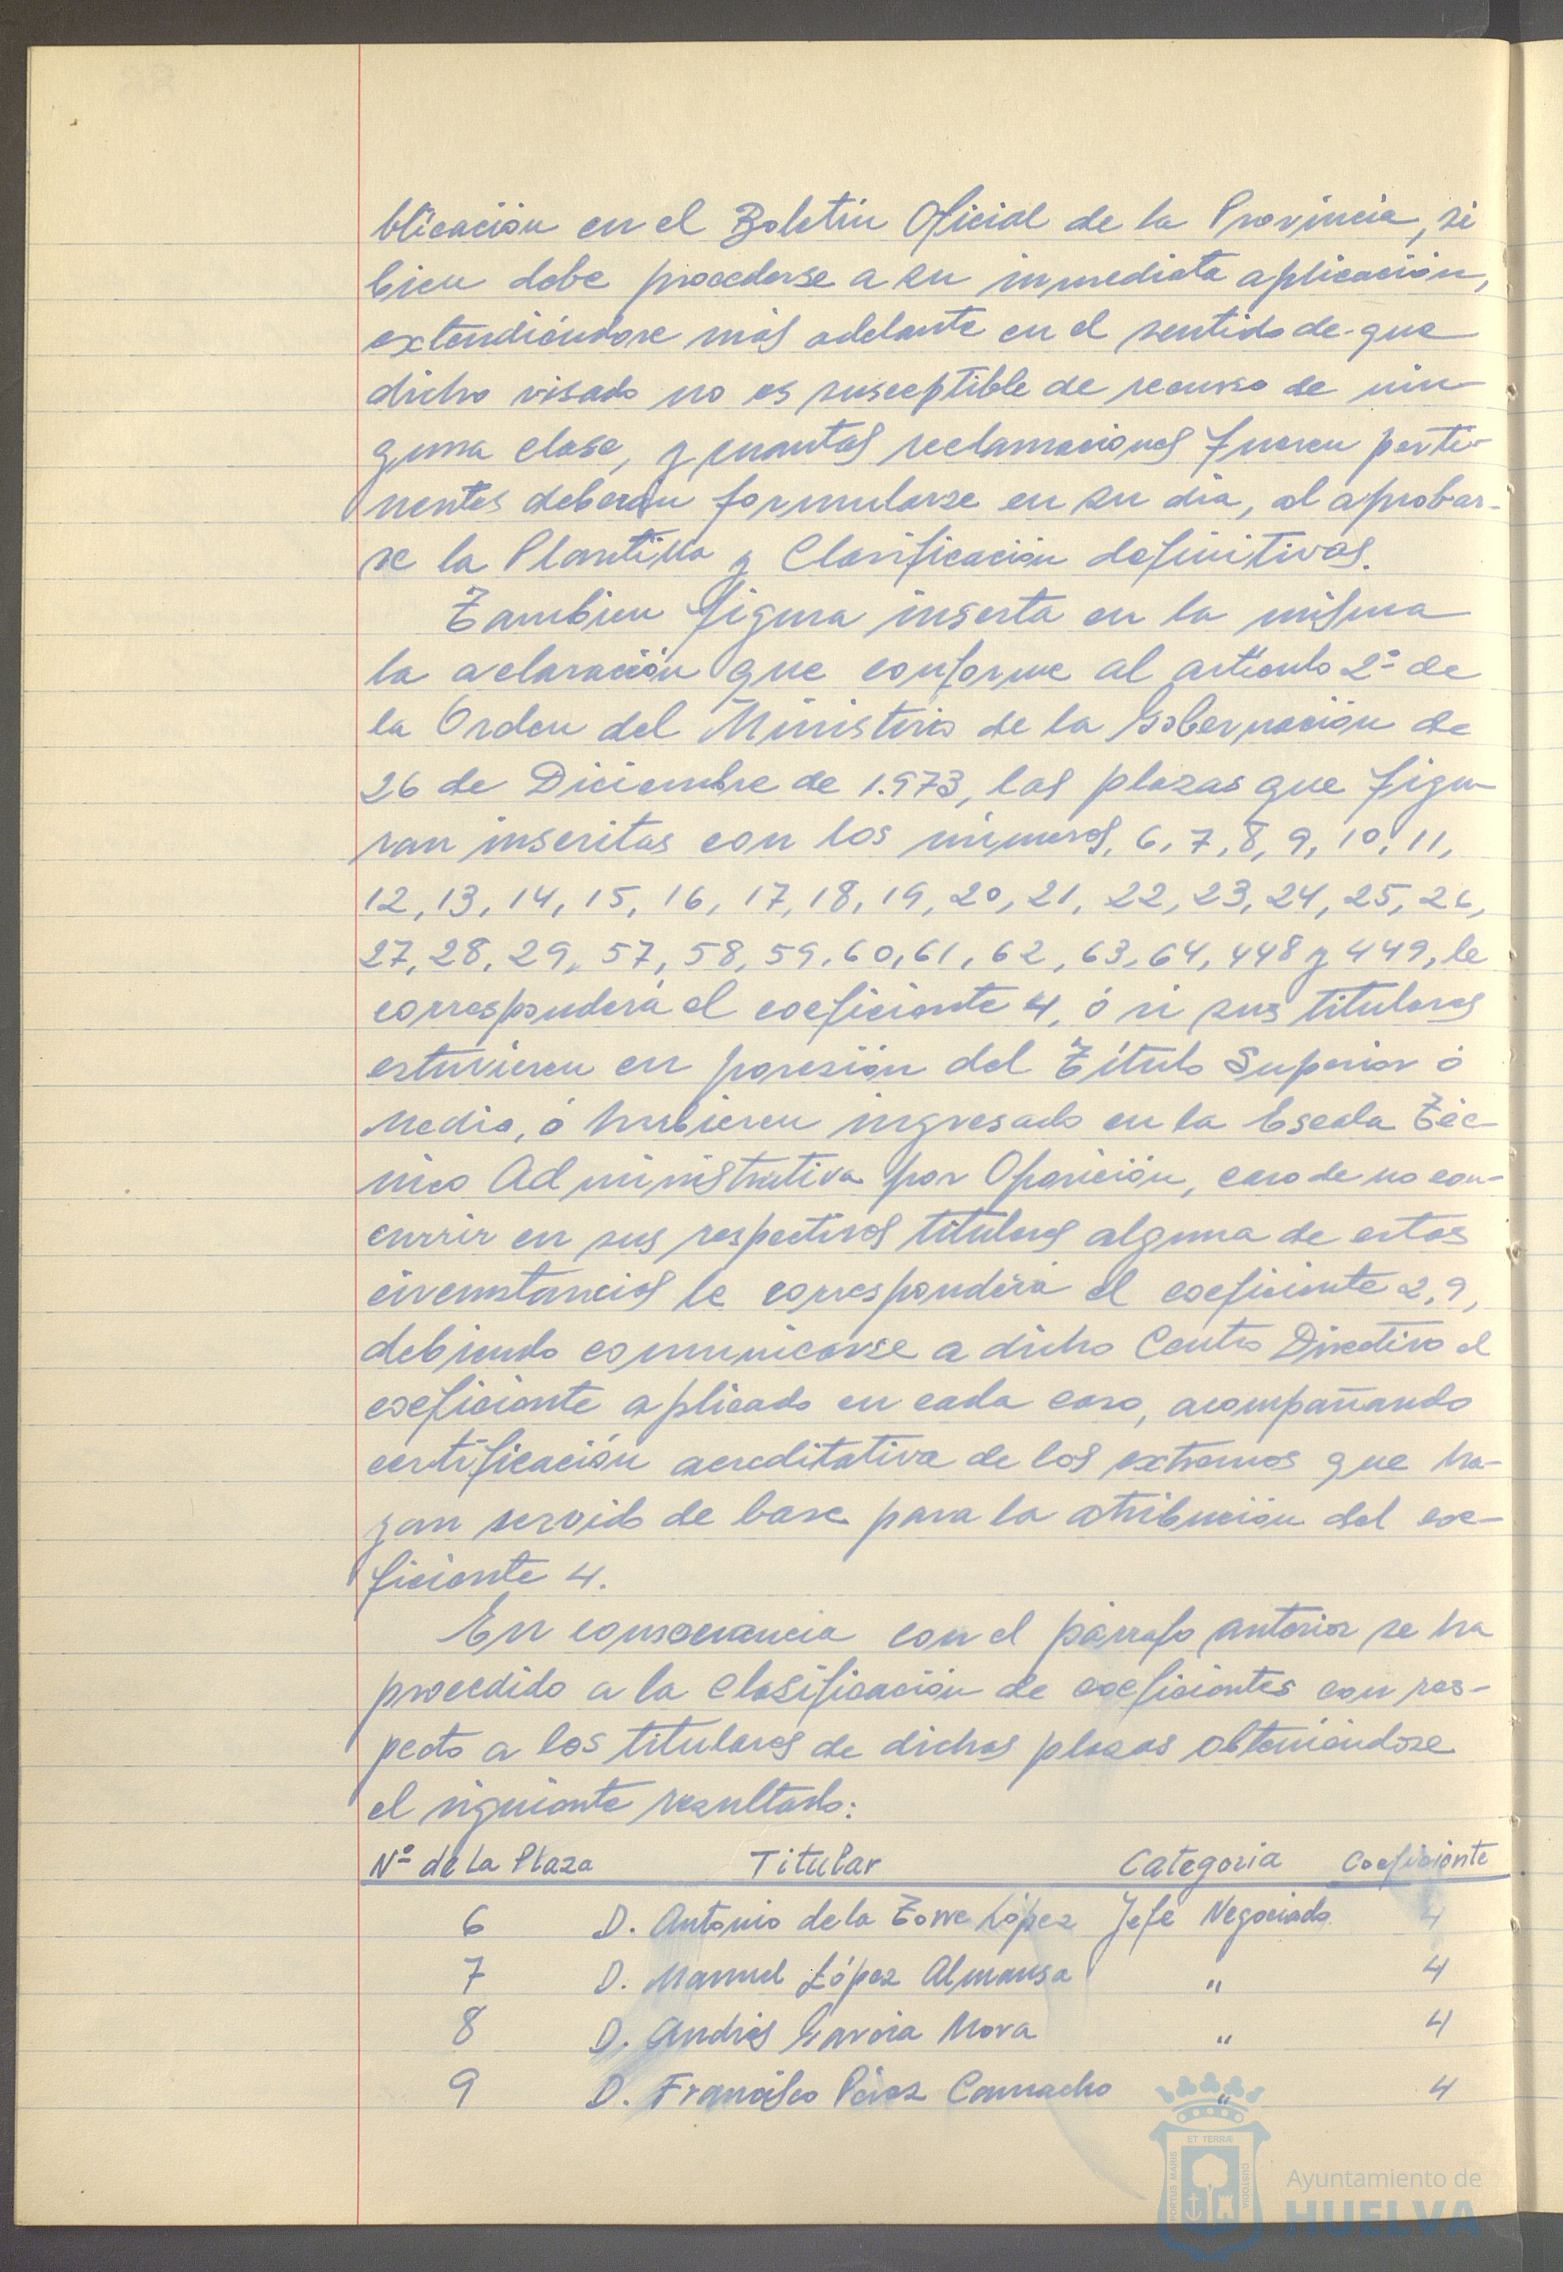 blicación en el Boletín Oficial de la Provincia, si
bien debe procederse a su inmediata aplicación,
extendiéndose más adelante en el sentido de que
dicho visado no es susceptible de recurso de nin-
guna clase, y cuantas reclamaciones fueren perti-
nentes deberán formularse en su día, al aprobar-
se la Plantilla y Clasificación definitivas.
Tambien figura inserta en la misma
la aclaración que conforme al artículo 2º de
la Orden del Ministerio de la Gobernación de
26 de Diciembre de 1.973, las plazas que figu-
ran inscritas con los números, 6, 7, 8, 9, 10, 11,
12, 13, 14, 15, 16, 17, 18, 19, 20, 21, 22, 23, 24, 25, 26,
27, 28, 29, 57, 58, 59, 60, 61, 62, 63, 64, 448 y 449, le
corresponderá el coeficiente 4, ó si sus titulares
estuvieren en posesión del Título Superior ó
Medio, ó hubieren ingresado en la Escala Téc-
nico Administrativa por Oposición, caso de no con-
currir en sus respectivos titulares alguna de estas
circunstancias le corresponderá el coeficiente 2,9,
debiendo comunicarse a dicho Centro Directivo el
coeficiente aplicado en cada caso, acompañando
certificación acreditativa de los extremos que ha-
yan servido de base para la atribución del coe-
ficiente 4.
En consecuencia con el párrafo anterior se ha
procedido a la clasificación de coeficientes con res-
pecto a los titulares de dichas plazas obteniéndose
el siguiente resultado:
Nº de la Plaza Titular Categoria Coeficiente
6 D. Antonio de la Torre López Jefe Negociado 4
7 D. Manuel López Almansa " 4
8 D. Andrés García Mora " 4
9 D. Francisco Pérez Camacho " 4
ET TERRÆ
PORTUS MARIS
CUSTODIA
Ayuntamiento de
HUELVA